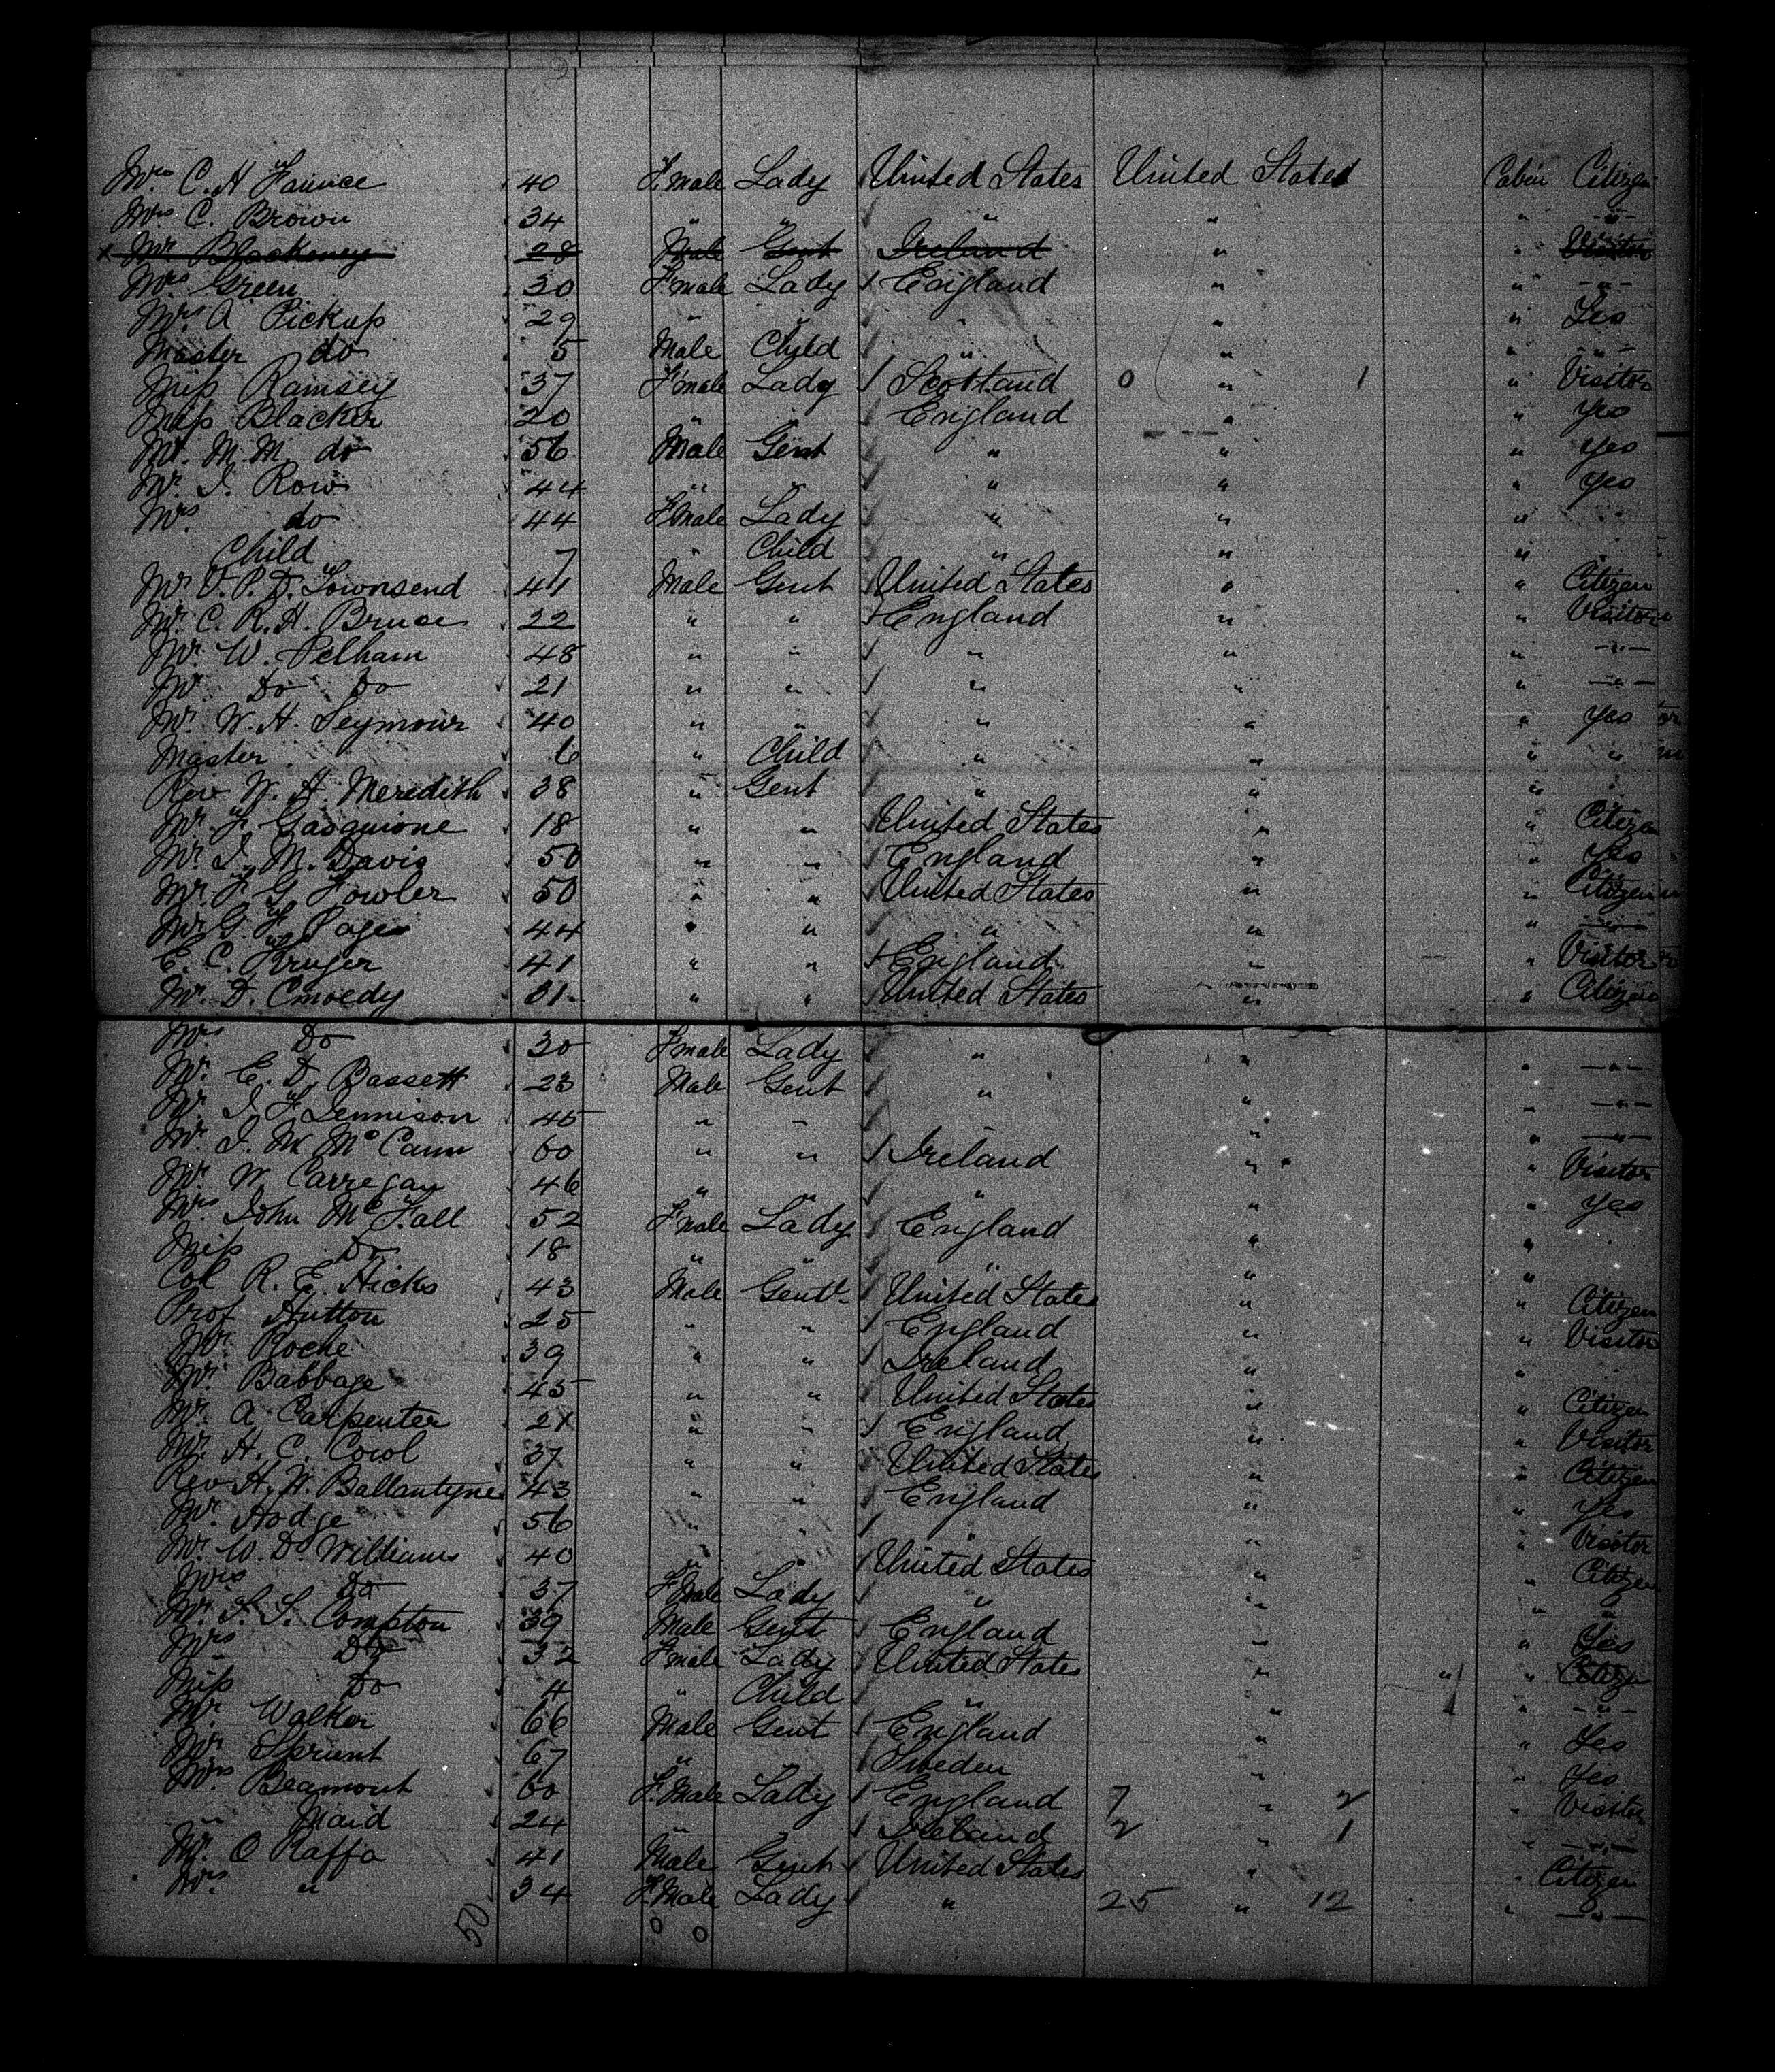 Mrs C. H Faunce 40 F.male Lady United States United States Cabin Citizen
Mrs C. Brown 34 " " " " " -"-
x Mr Blackeney 28 Male Gent Ireland " " Visitor
Mrs Green 30 F.male Lady England " " -"-
Mrs A Pickup 29 " " " " " Yes
Master do 5 Male Child " " " -"-
Miss Ramsey 37 F.male Lady Scotland 0 " 1 " Visitor
Miss Blacker 20 " " England " " yes
Mr. M. M. do 56 Male Gent " " " yes
Mr. I. Row 44 " " " " " yes
Mrs do 44 F.male Lady " " "
Child 7 " Child " " "
Mr V. P. D. Townsend 41 Male Gent United States " " Citizen
Mr. C. R. H. Bruce 22 " " England " " Visitor
Mr. W. Pelham 48 " " " " " -"-
Mr. Do Do 21 " " " " " -"-
Mr. W. H. Seymour 40 " " " " " yes
Master 6 " Child " " " "
Rev W. H. Meredith 38 " Gent " " " "
Mr. F. Gasquione 18 " " United States " " Citizen
Mr. I. M. Davis 50 " " England " " Yes
Mr. F. G. Fowler 50 " " United States " " Citizen
Mr. G. F. Page 44 " " " " " -"-
E. C. Kruger 41 " " England " " Visitor
Mr. D. 31 " " United States " " Citizen
Mrs Do 30 F.male Lady " " " -"-
Mr. E. D. Bassett 23 Male Gent " " " -"-
Mr. I. F. Lennison 45 " " " " -"-
Mr. I. M. McCann 60 " " Ireland " " Visitor
Mr. W. Carregan 46 " " " " " yes
Mrs John McFall 52 F.male Lady England " "
Miss Do 18 " " " " "
Col R. E. Hicks 43 Male Gent United States " " Citizen
Prof Hutton 25 " " England " " Visitor
Mr. Roche 39 " " Ireland " " "
Mr. Babbage 45 " " United States " " Citizen
Mr. A Carpenter 21 " " England " " Visitor
Mr. H. C. Cowl 37 " " United States " " Citizen
Rev H. W. Ballantyne 43 " " England " " yes
Mr. Hodge 56 " " " " " Visitor
Mr. W. D. Williams 40 " " United States " " Citizen
Mrs Do 37 F.male Lady " " " "
Mr. S. S. Compton 39 Male Gent England " " Yes
Mrs Do 32 F.male Lady United States " " " Citizen
Miss Do 4 " Child " " " -"-
Mr Walker 66 Male Gent England " " Yes
Mr Sprunt 67 " " Sweden " " Yes
Mrs Beamont 60 F.male Lady England 7 " 2 " Visitor
" Maid 24 " " Ireland 2 " 1 " -"-
Mr. O Raffo 41 Male Gent United States " " Citizen
Mrs " 34 F.male Lady " 25 " 12 " -"-
50 0 0